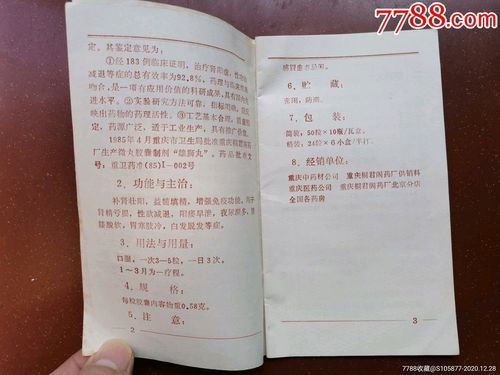 7788.com
定。其鉴定意见为：
①经183例临床证明，治疗肾阳虚，性功能
减退等症的总有效率为92.8%，药理与临床
吻合，是一项有应用价值的科研成果，具有国内先
进水平。②实验研究方法可靠，指标明确，
映出药物的药理活性。③工艺基本合理，质量
定，药源广泛，适于工业生产，具有推广价值。
1985年4月重庆市卫生局批准重庆桐君阁
厂生产微丸胶囊制剂“雄狮丸”。药品批准文
号：重卫药准(85)Ⅰ—002号
2．功能与主治：
补肾壮阳，益髓填精，增强免疫功能。用于
肾精亏损，性欲减退，阳痿早泄，夜尿频多，腰
膝酸软，胃寒肢冷，白发脱发等症。
3．用法与用量：
口服，一次3—5粒，一日3次，
1～3月为一疗程。
4．规格：
每粒胶囊内容物重0.58克。
5．注意：
2
感冒患者忌用。
6．贮藏：
密闭，防潮。
7．包装：
简装：50粒×10瓶/瓦盒。
精装：24粒×6小盒/半打。
8．经销单位：
重庆中药材公司 重庆桐君阁药厂供销科
重庆医药公司 重庆桐君阁药厂北京分店
全国各药房
3
7788收藏@S105877-2020.12.28